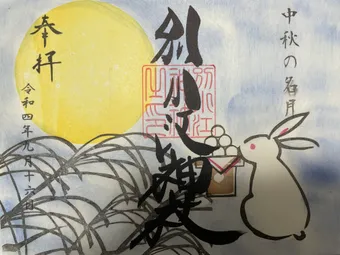 中秋の名月
別小江神社
奉拝
令和四年九月十六日